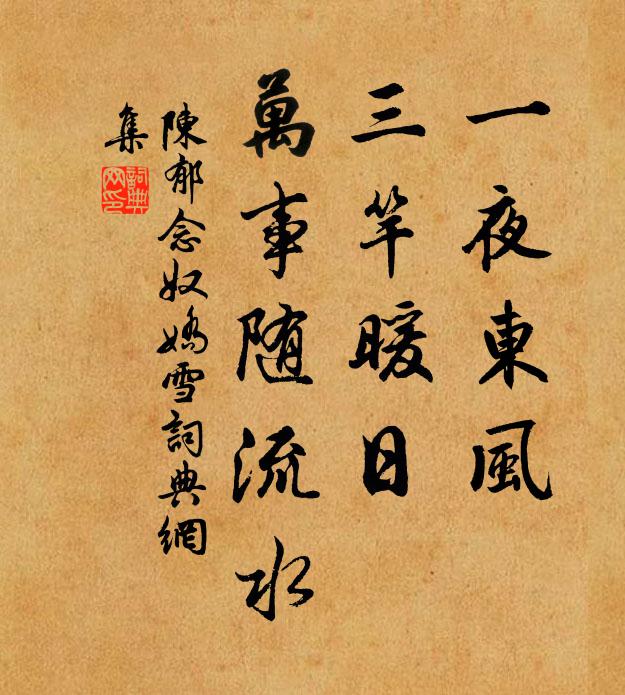 一夜東風
三竿暖日
萬事随流水
陳郁念奴嬌雪詞典網
集
詞典
网印